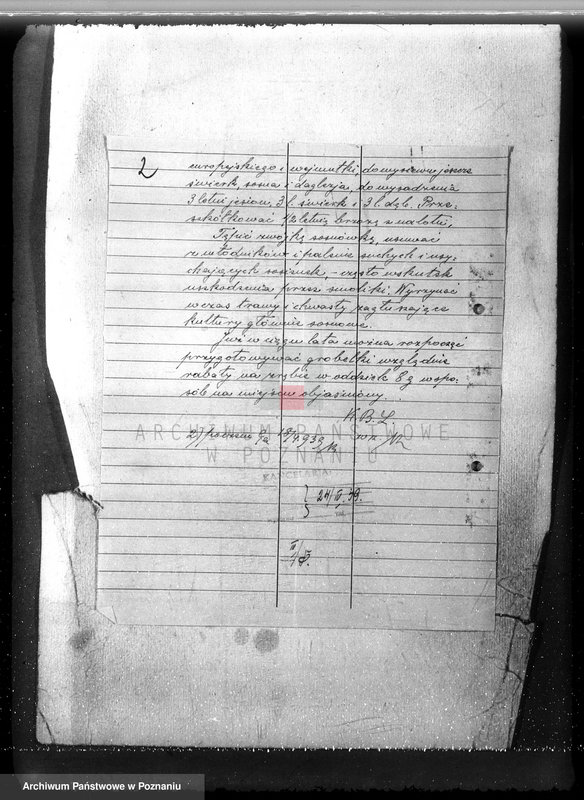 2
europejskiego i wejmutki, do wysiewu jeszcze
świerk, sosna i daglezja, do wysadzenia
3 letni jesion, 3 l. świerk i 3 l. dgl. Prze-
szkółkować 1/2 letnią brzozę z nalotu,
Tępić zwójkę sosnówkę, usuwać
z młodników i palenie suchych i usy-
chających sosenek – często wskutek
uszkodzenia przez smoliki. Wyrzynać
wczas trawy i chwasty zagłuszające
kultury głównie sosnowe.
Już w ciągu lata można rozpocząć
przygotowywać grobelki względnie
rabaty na zrębie w oddziele 8 g w spo-
sób na miejscu objaśniony.
K. B. L.
ARCHIWUM PAŃSTWOWE
W POZNANIU
KANCELARIA
2)
Archiwum Państwowe w Poznaniu